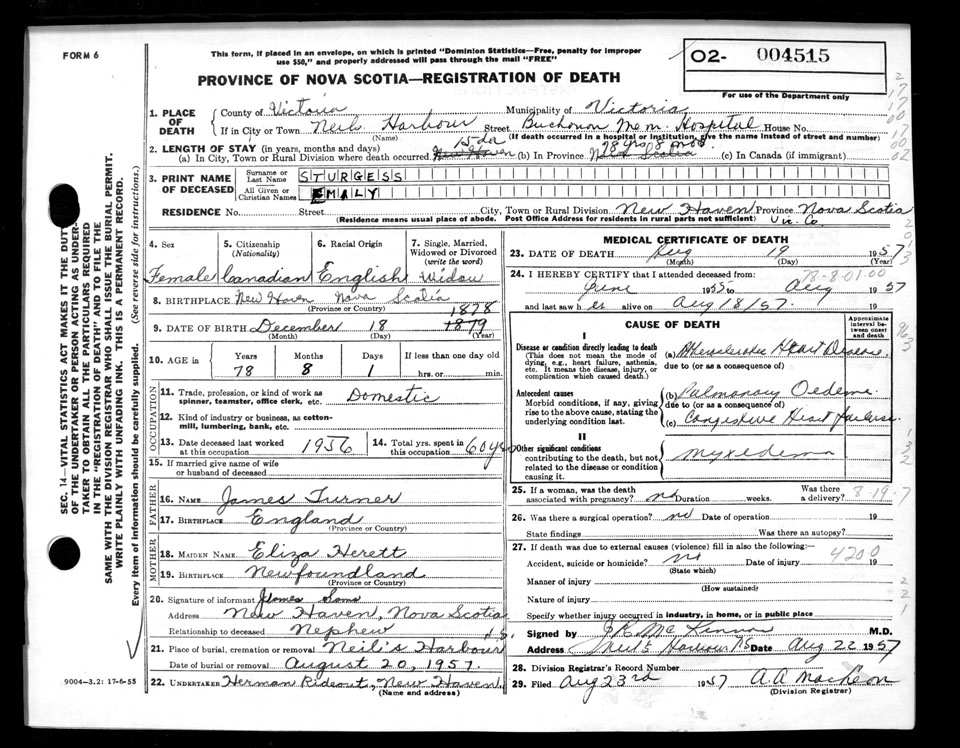 FORM 6
This form, if placed in an envelope, on which is printed "Dominion Statistics—Free, penalty for improper
use $50," and properly addressed will pass through the mail "FREE"
02- 004515
For use of the Department only
PROVINCE OF NOVA SCOTIA—REGISTRATION OF DEATH
1. PLACE OF DEATH
County of Victoria Municipality of Victoria
If in City or Town Neils Harbour Street Buchanan Mem. Hospital House No.
(Name) (If death occurred in a hospital or institution, give name instead of street and number)
2. LENGTH OF STAY (in years, months and days) 15 da 78 yrs 8 mos
(a) In City, Town or Rural Division where death occurred New Haven (b) In Province Nova Scotia (c) In Canada (if immigrant)
3. PRINT NAME OF DECEASED
Surname or Last Name STURGESS
All Given or Christian Names EMILY
RESIDENCE No. Street City, Town or Rural Division New Haven Province Nova Scotia
(Residence means usual place of abode. Post Office Address for residents in rural parts not sufficient) Vic. Co.
4. Sex 5. Citizenship (Nationality) 6. Racial Origin 7. Single, Married, Widowed or Divorced (write the word)
Female Canadian English Widow
8. BIRTHPLACE New Haven Nova Scotia
(Province or Country)
1878
9. DATE OF BIRTH December 18 1879
(Month) (Day) (Year)
10. AGE in Years Months Days If less than one day old
78 8 1 hrs. or min.
OCCUPATION
11. Trade, profession, or kind of work as spinner, teamster, office clerk, etc. Domestic
12. Kind of industry or business, as cotton-mill, lumbering, bank, etc.
13. Date deceased last worked at this occupation 1956 14. Total yrs. spent in this occupation 60 yrs
15. If married give name of wife or husband of deceased
FATHER
16. NAME James Turner
17. BIRTHPLACE England
(Province or Country)
MOTHER
18. MAIDEN NAME Eliza Herett
19. BIRTHPLACE Newfoundland
(Province or Country)
20. Signature of informant James Sams
Address New Haven, Nova Scotia
Relationship to deceased Nephew
21. Place of burial, cremation or removal Neil's Harbour
Date of burial or removal August 20, 1957.
22. UNDERTAKER Herman Rideout, New Haven,
(Name and address)
9004-3.2: 17-6-55
SEC. 14—VITAL STATISTICS ACT MAKES IT THE DUTY
OF THE UNDERTAKER OR PERSON ACTING AS UNDER-
TAKER TO OBTAIN ALL THE PARTICULARS REQUIRED
IN THE "REGISTRATION OF DEATH" AND TO FILE THE
SAME WITH THE DIVISION REGISTRAR WHO SHALL ISSUE THE BURIAL PERMIT.
WRITE PLAINLY WITH UNFADING INK. THIS IS A PERMANENT RECORD.
Every item of information should be carefully supplied. (See reverse side for instructions.)
MEDICAL CERTIFICATE OF DEATH
23. DATE OF DEATH Aug 19 1957
(Month) (Day) (Year)
24. I HEREBY CERTIFY that I attended deceased from: 78-8-01.00
June 1955 to Aug 1957
and last saw her alive on Aug 18/57. 19
CAUSE OF DEATH
Approximate interval between onset and death
I
Disease or condition directly leading to death
(This does not mean the mode of dying, e.g., heart failure, asthenia, etc. It means the disease, injury, or complication which caused death.)
(a) Arteriosclerotic Heart Disease
due to (or as a consequence of)
Antecedent causes
Morbid conditions, if any, giving rise to the above cause, stating the underlying condition last.
(b) Pulmonary Oedema
due to (or as a consequence of)
(c) Congestive Heart Failure
II
Other significant conditions
contributing to the death, but not related to the disease or condition causing it.
Myxedema
25. If a woman, was the death associated with pregnancy? no Duration weeks. Was there a delivery? 8-19-7
26. Was there a surgical operation? no Date of operation 19
State findings Was there an autopsy?
27. If death was due to external causes (violence) fill in also the following:—
Accident, suicide or homicide? no Date of injury 19 4200
(State which)
Manner of injury
(How sustained)
Nature of injury
Specify whether injury occurred in industry, in home, or in public place
Signed by McKinnon M.D.
Address Neil's Harbour NS Date Aug 22 1957
28. Division Registrar's Record Number
29. Filed Aug 23rd 1957 A. A. MacLeon
(Division Registrar)